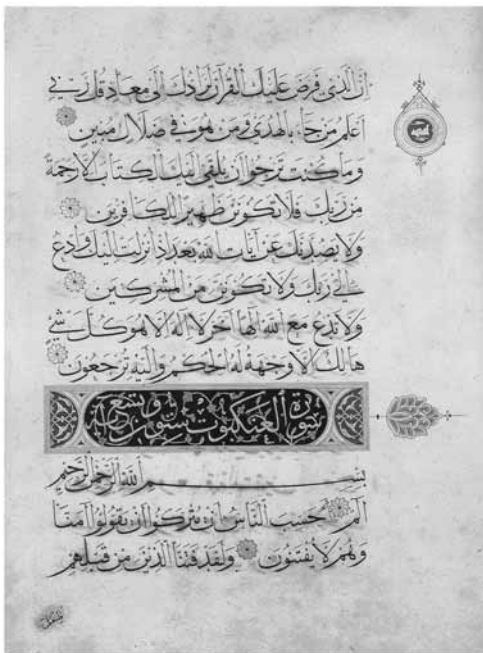 إن الذي فرض عليك القرآن لرادك إلى معاد قل ربي
أعلم من جاء بالهدى ومن هو في ضلال مبين
وما كنت ترجو أن يلقى إليك الكتاب إلا رحمة
من ربك فلا تكونن ظهيرا للكافرين
ولا يصدنك عن آيات الله بعد إذ أنزلت إليك وادع
إلى ربك ولا تكونن من المشركين
ولا تدع مع الله إلها آخر لا إله إلا هو كل شيء
هالك إلا وجهه له الحكم وإليه ترجعون
سورة العنكبوت ستون وتسع
بسم الله الرحمن الرحيم
الم أحسب الناس أن يتركوا أن يقولوا آمنا
وهم لا يفتنون ولقد فتنا الذين من قبلهم